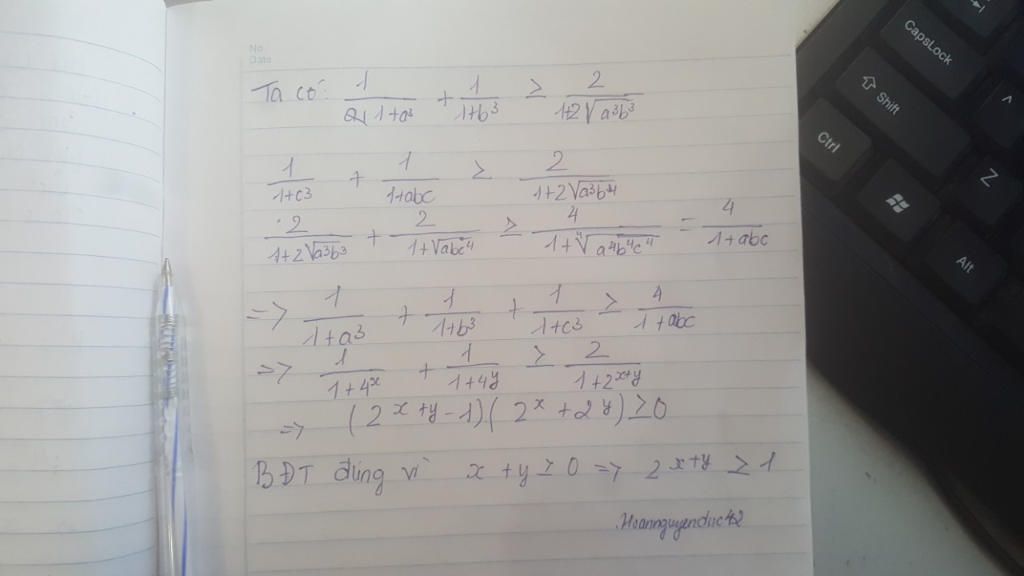 No
Date
Ta có: 1/(2√1+a³) + 1/(1+b³) ≥ 2/(1+2√(a³b³))
1/(1+c³) + 1/(1+abc) ≥ 2/(1+2√(a³b⁴))
2/(1+2√(a³b³)) + 2/(1+√(abc⁴)) ≥ 4/(1+⁴√(a⁴b⁴c⁴)) = 4/(1+abc)
=> 1/(1+a³) + 1/(1+b³) + 1/(1+c³) ≥ 4/(1+abc)
=> 1/(1+4^x) + 1/(1+4^y) ≥ 2/(1+2^(x+y))
=> (2^(x+y) - 1).(2^x + 2^y) ≥ 0
BĐT đúng vì x + y ≥ 0 => 2^(x+y) ≥ 1
.Hoannguyenduc42
CapsLock
Shift
Ctrl
Z
Alt